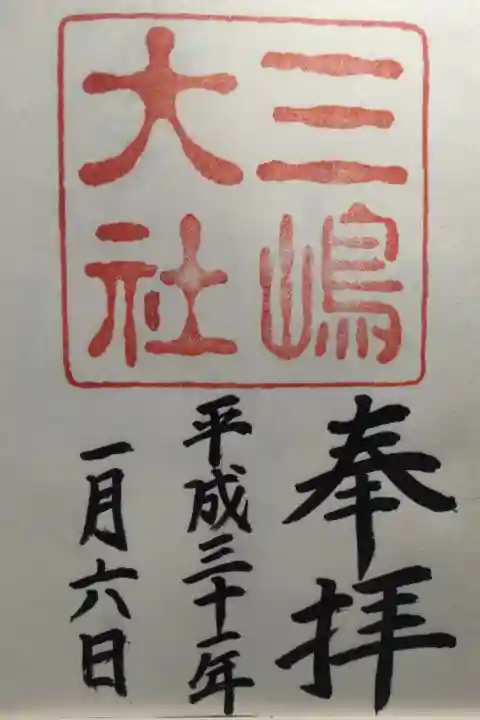 三嶋
大社
奉拝
平成三十一年
一月六日